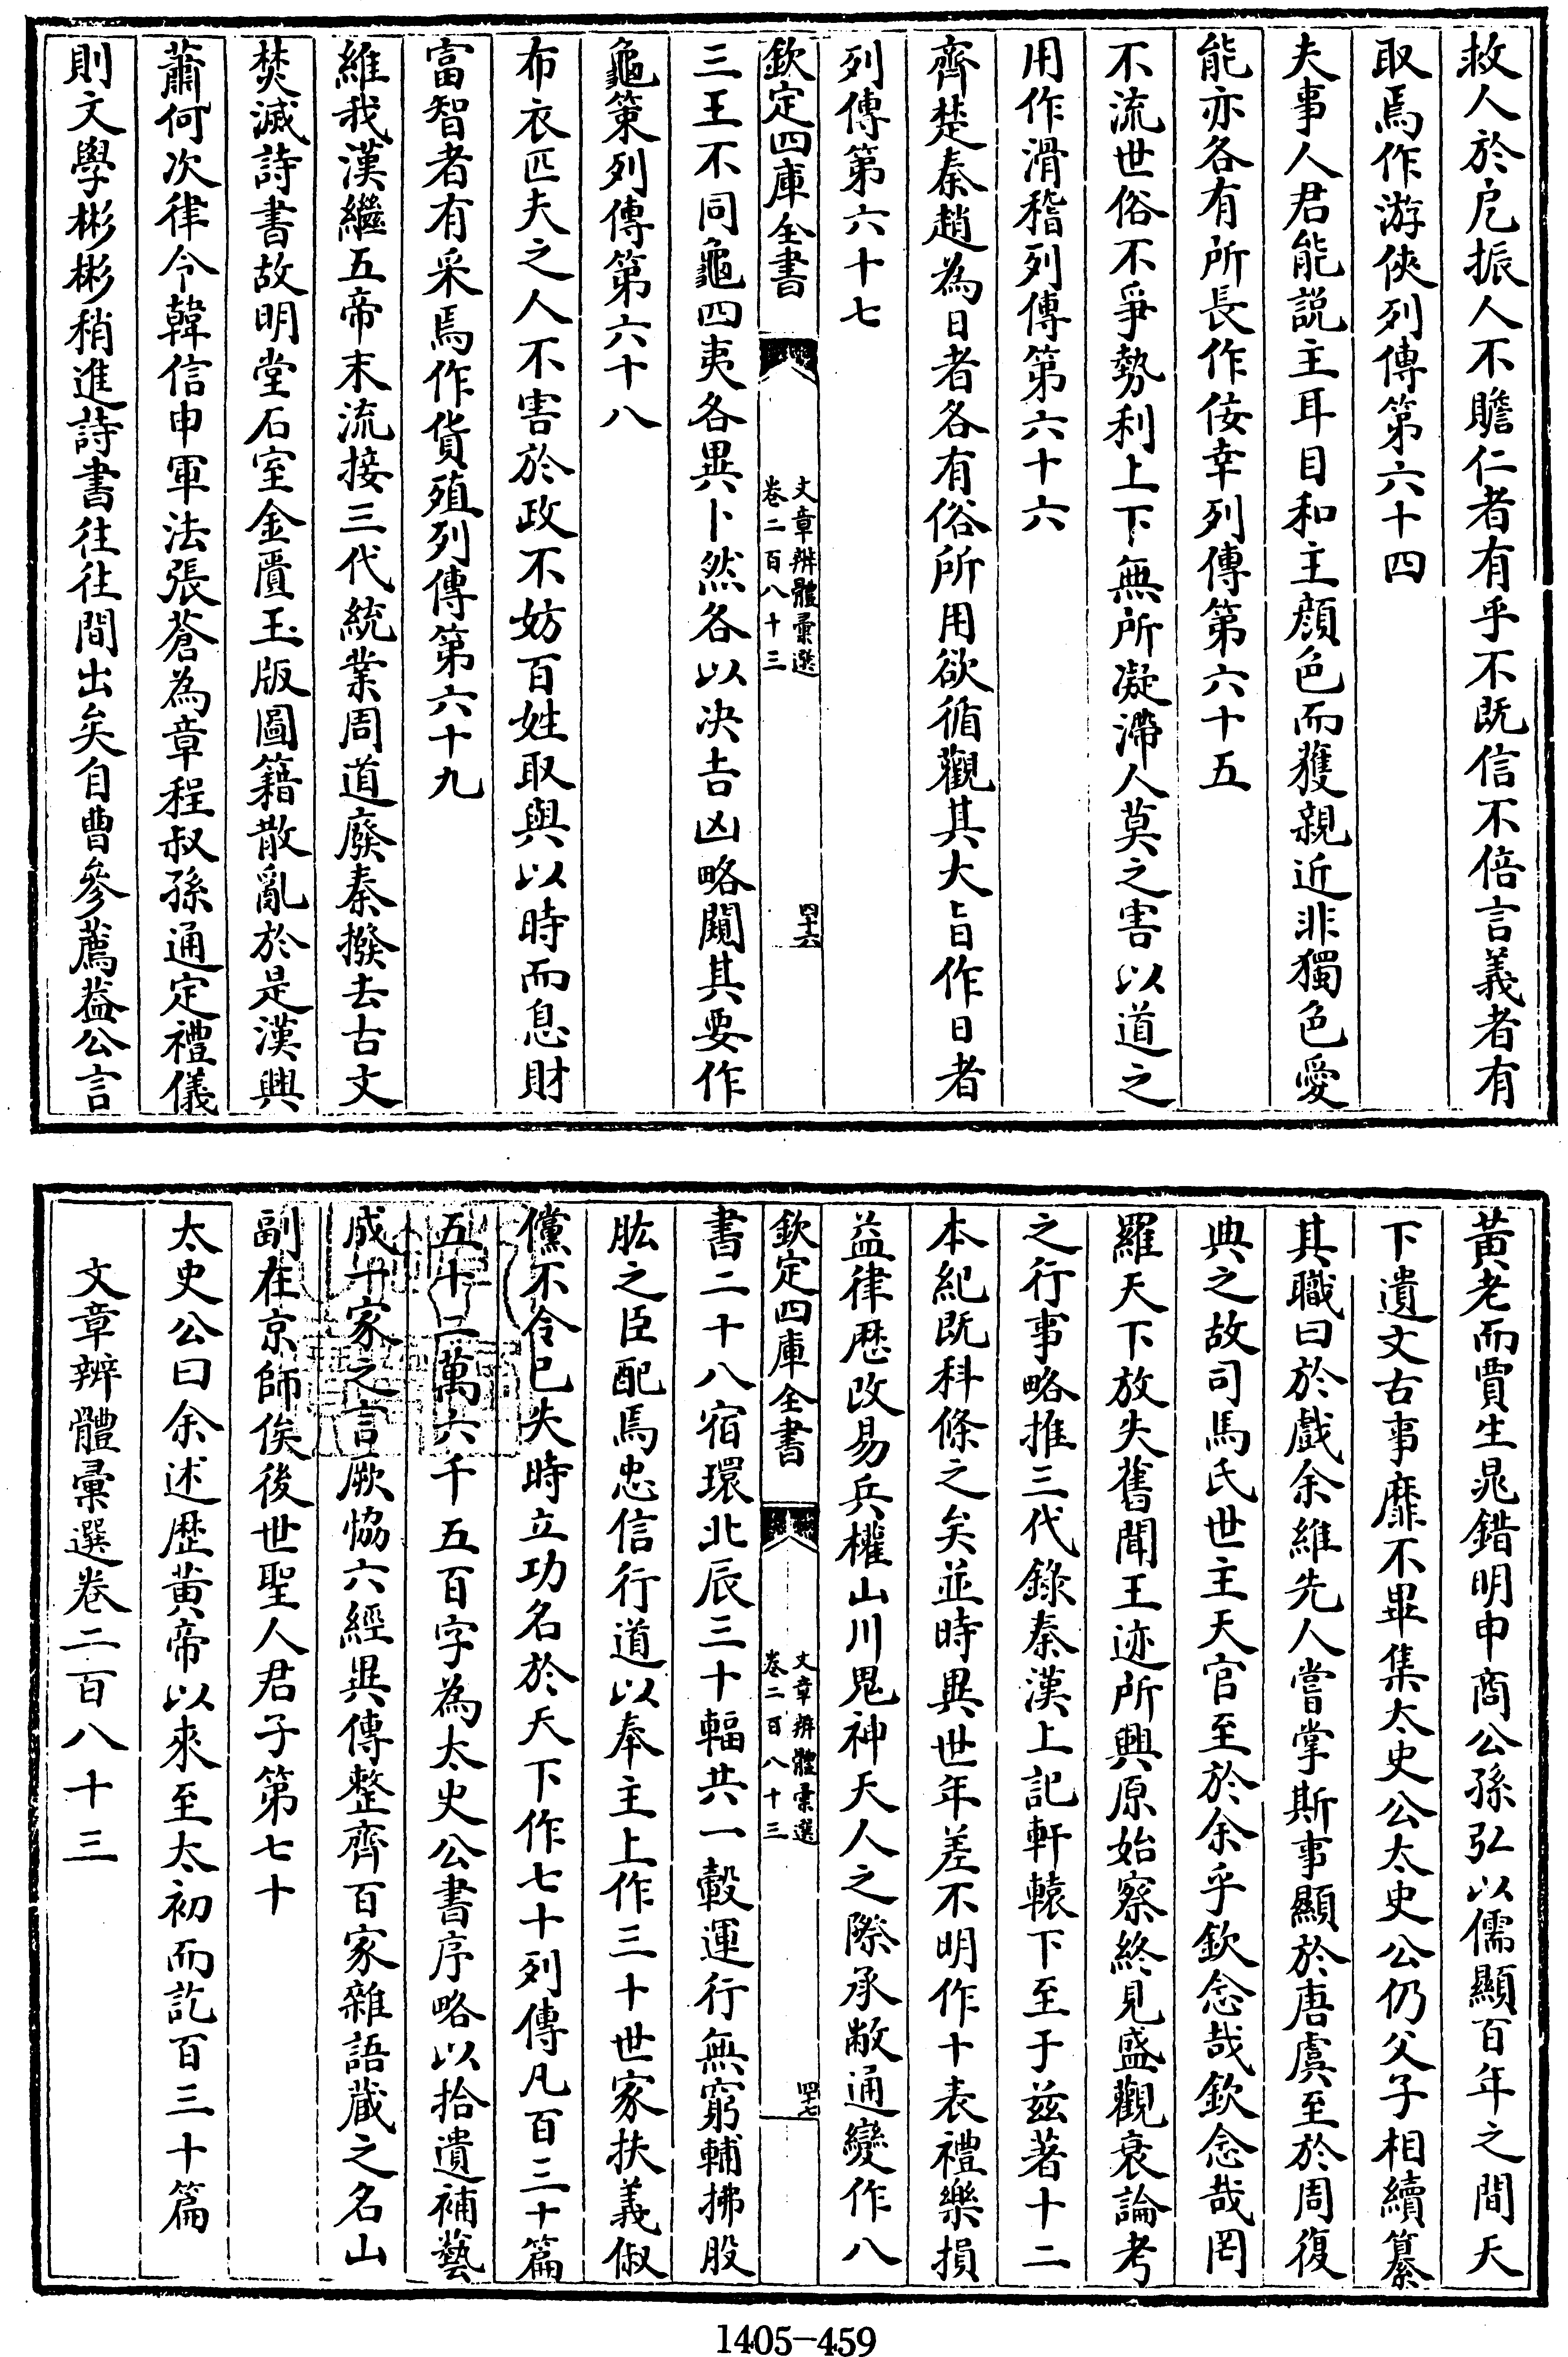 救人於戹振人不贍仁者有乎不既信不倍言義者有
取焉作游俠列傳第六十四
夫事人君能説主耳目和主顔色而獲親近非獨色愛
能亦各有所長作佞幸列傳第六十五
不流世俗不爭勢利上下無所凝滯人莫之害以道之
用作滑稽列傳第六十六
齊楚秦趙為日者各有俗所用欲循觀其大旨作日者
列傳第六十七
欽定四庫全書
文章辨體彙選
卷二百八十三
四十六
三王不同龜四夷各異卜然各以决吉凶略闚其要作
龜策列傳第六十八
布衣匹夫之人不害於政不妨百姓取與以時而息財
富智者有采焉作貨殖列傳第六十九
維我漢繼五帝末流接三代統業周道廢秦撥去古文
焚滅詩書故明堂石室金匱玉版圖籍散亂於是漢興
蕭何次律令韓信申軍法張蒼為章程叔孫通定禮儀
則文學彬彬稍進詩書往往間出矣自曹參薦葢公言
黃老而賈生鼂錯明申商公孫弘以儒顯百年之間天
下遺文古事靡不畢集太史公太史公仍父子相續纂
其職曰於戲余維先人嘗掌斯事顯於唐虞至於周復
典之故司馬氏世主天官至於余乎欽念哉欽念哉罔
羅天下放失舊聞王迹所興原始察終見盛觀衰論考
之行事略推三代錄秦漢上記軒轅下至于兹著十二
本紀既科條之矣並時異世年差不明作十表禮樂損
益律厯改易兵權山川鬼神天人之際承敝通變作八
欽定四庫全書
文章辨體彙選
卷二百八十三
四十七
書二十八宿環北辰三十輻共一轂運行無窮輔拂股
肱之臣配焉忠信行道以奉主上作三十世家扶義俶
儻不令已失時立功名於天下作七十列傳凡百三十篇
五十二萬六千五百字為太史公書序略以拾遺補藝
成一家之言厥協六經異傳整齊百家雜語藏之名山
副在京師俟後世聖人君子第七十
太史公曰余述歷黃帝以來至太初而訖百三十篇
文章辨體彙選卷二百八十三
1405-459